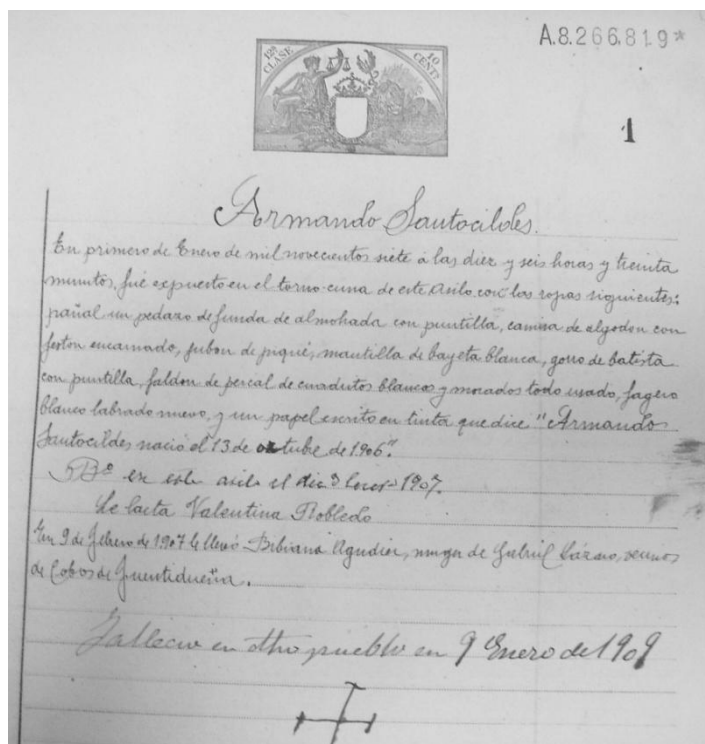 A.8.266.819*
12ª CLASE 10 CENTS
1
Armando Santocildes.
En primero de Enero de mil novecientos siete á las diez y seis horas y treinta
minutos, fué expuesto en el torno-cuna de este Asilo con las ropas siguientes:
pañal un pedazo de funda de almohada con puntilla, camisa de algodon con
feston encarnado, jubon de piqué, mantilla de bayeta blanca, gorro de batista
con puntilla, faldon de percal de cuadritos blancos y morados todo usado, fagero
blanco labrado nuevo, y un papel escrito en tinta que dice "Armando
Santocildes nació el 13 de octubre de 1906".
en este asilo el dia 3 Enero 1907.
Le lacta Valentina Robledo
En 9 de febrero de 1907 le llevó Bibiana Agudiez, muger de Gabriel Lázaro, vecinos
de Cobos de Fuentidueña.
Fallecio en dtho pueblo en 9 Enero de 1909